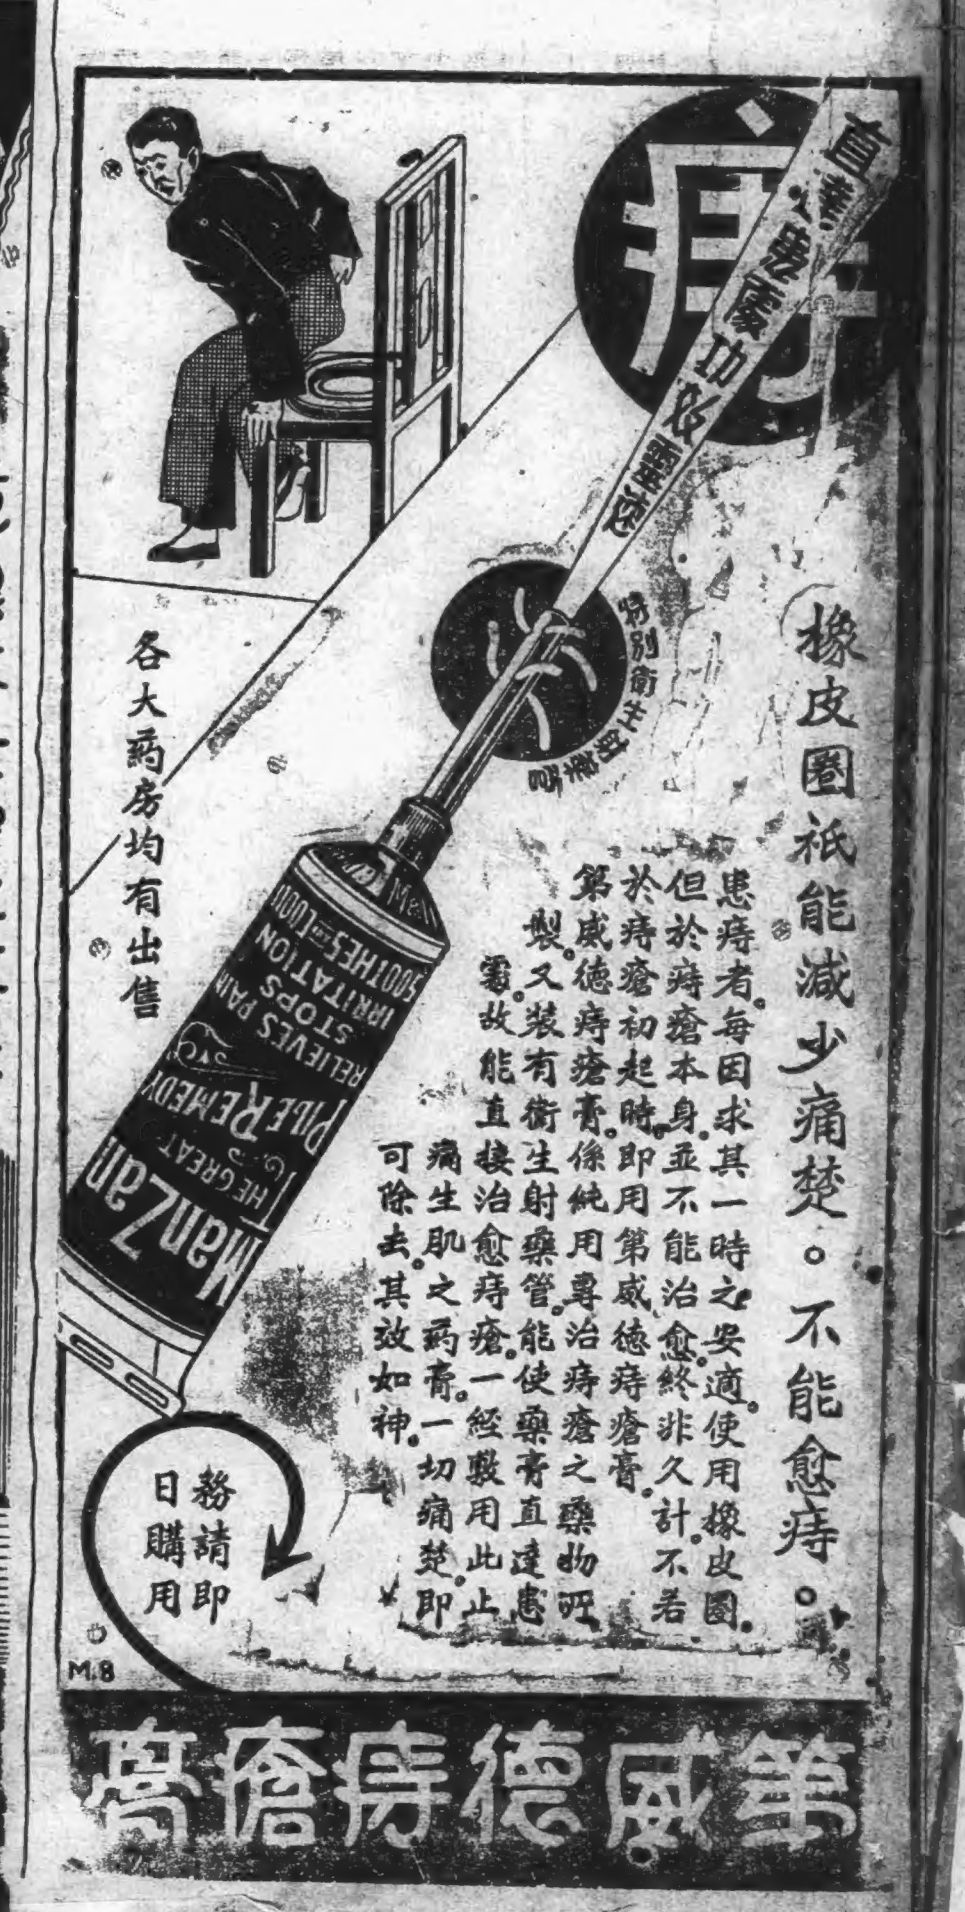 痔
直達患處功效靈速
特別衛生射藥管
橡皮圈祇能減少痛楚。不能愈痔。
患痔者。每因求其一時之安適。使用橡皮圈。
但於痔瘡本身。並不能治愈。終非久計。不若
於痔瘡初起時。即用第威德痔瘡膏。
第威德痔瘡膏。係純用專治痔瘡之藥物所
製。又裝有衛生射藥管。能使藥膏直達患
處。故能直接治愈痔瘡。一經敷用此止
痛生肌之药膏。一切痛楚。即
可除去。其效如神。
各大药房均有出售
ManZan
THE GREAT
PILE REMEDY
RELIEVES PAIN
STOPS
IRRITATION
SOOTHES AND COOLS
務請即
日購用
M.8
第威德痔瘡膏